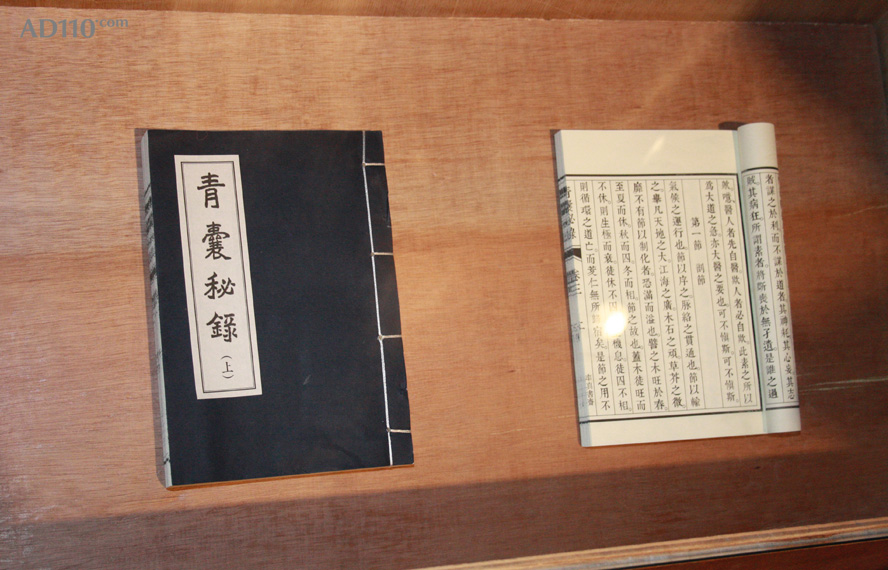 AD110.com
青囊秘錄
(上)
者謀之於利而不謀於道者其神耗其心妄其志
賊其病在所謂素者將斷喪於無孑遺是誰之過
歟噫醫人者先自醫欺人者必自欺此素之所以
爲大道之忌亦大醫之要也可不愼斯可不愼斯
第一節 調節
氣候之運行也節以序之脉絡之貫通也節以輸
之舉凡天地之大江海之廣木石之頑草芥之微
靡不有節以制化者恐滿而溢也譬之木旺於春
至夏而休秋而囚冬而相節之故也蓋木徒旺而
不休則生極而衰徒休不囚機息徒囚不相
則循環之道亡而爰仁無所矣是節之用不
卷三